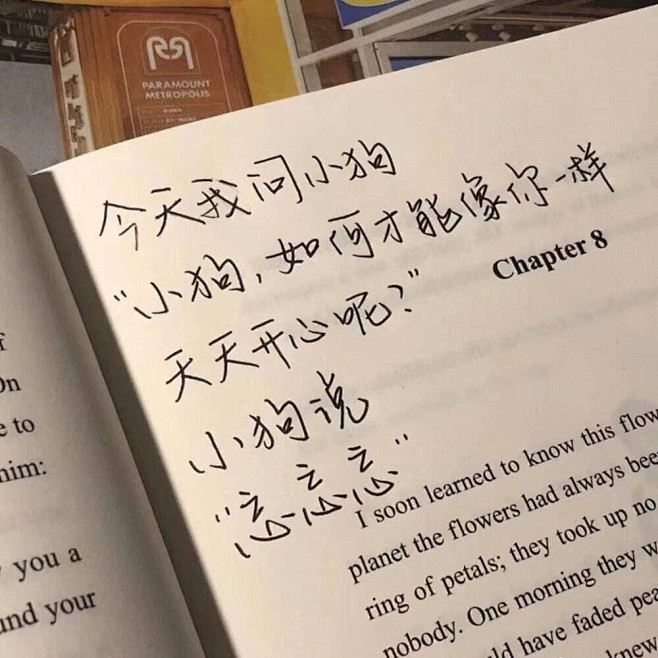 PARAMOUNT
METROPOLIS
今天我问小狗
“小狗,如何才能像你一样
天天开心呢?”
小狗说
“忘忘忘”
Chapter 8
I soon learned to know this flow
planet the flowers had always bee
ring of petals; they took up no
nobody. One morning they w
ld have faded pea
knew
On
e to
him:
you a
und your